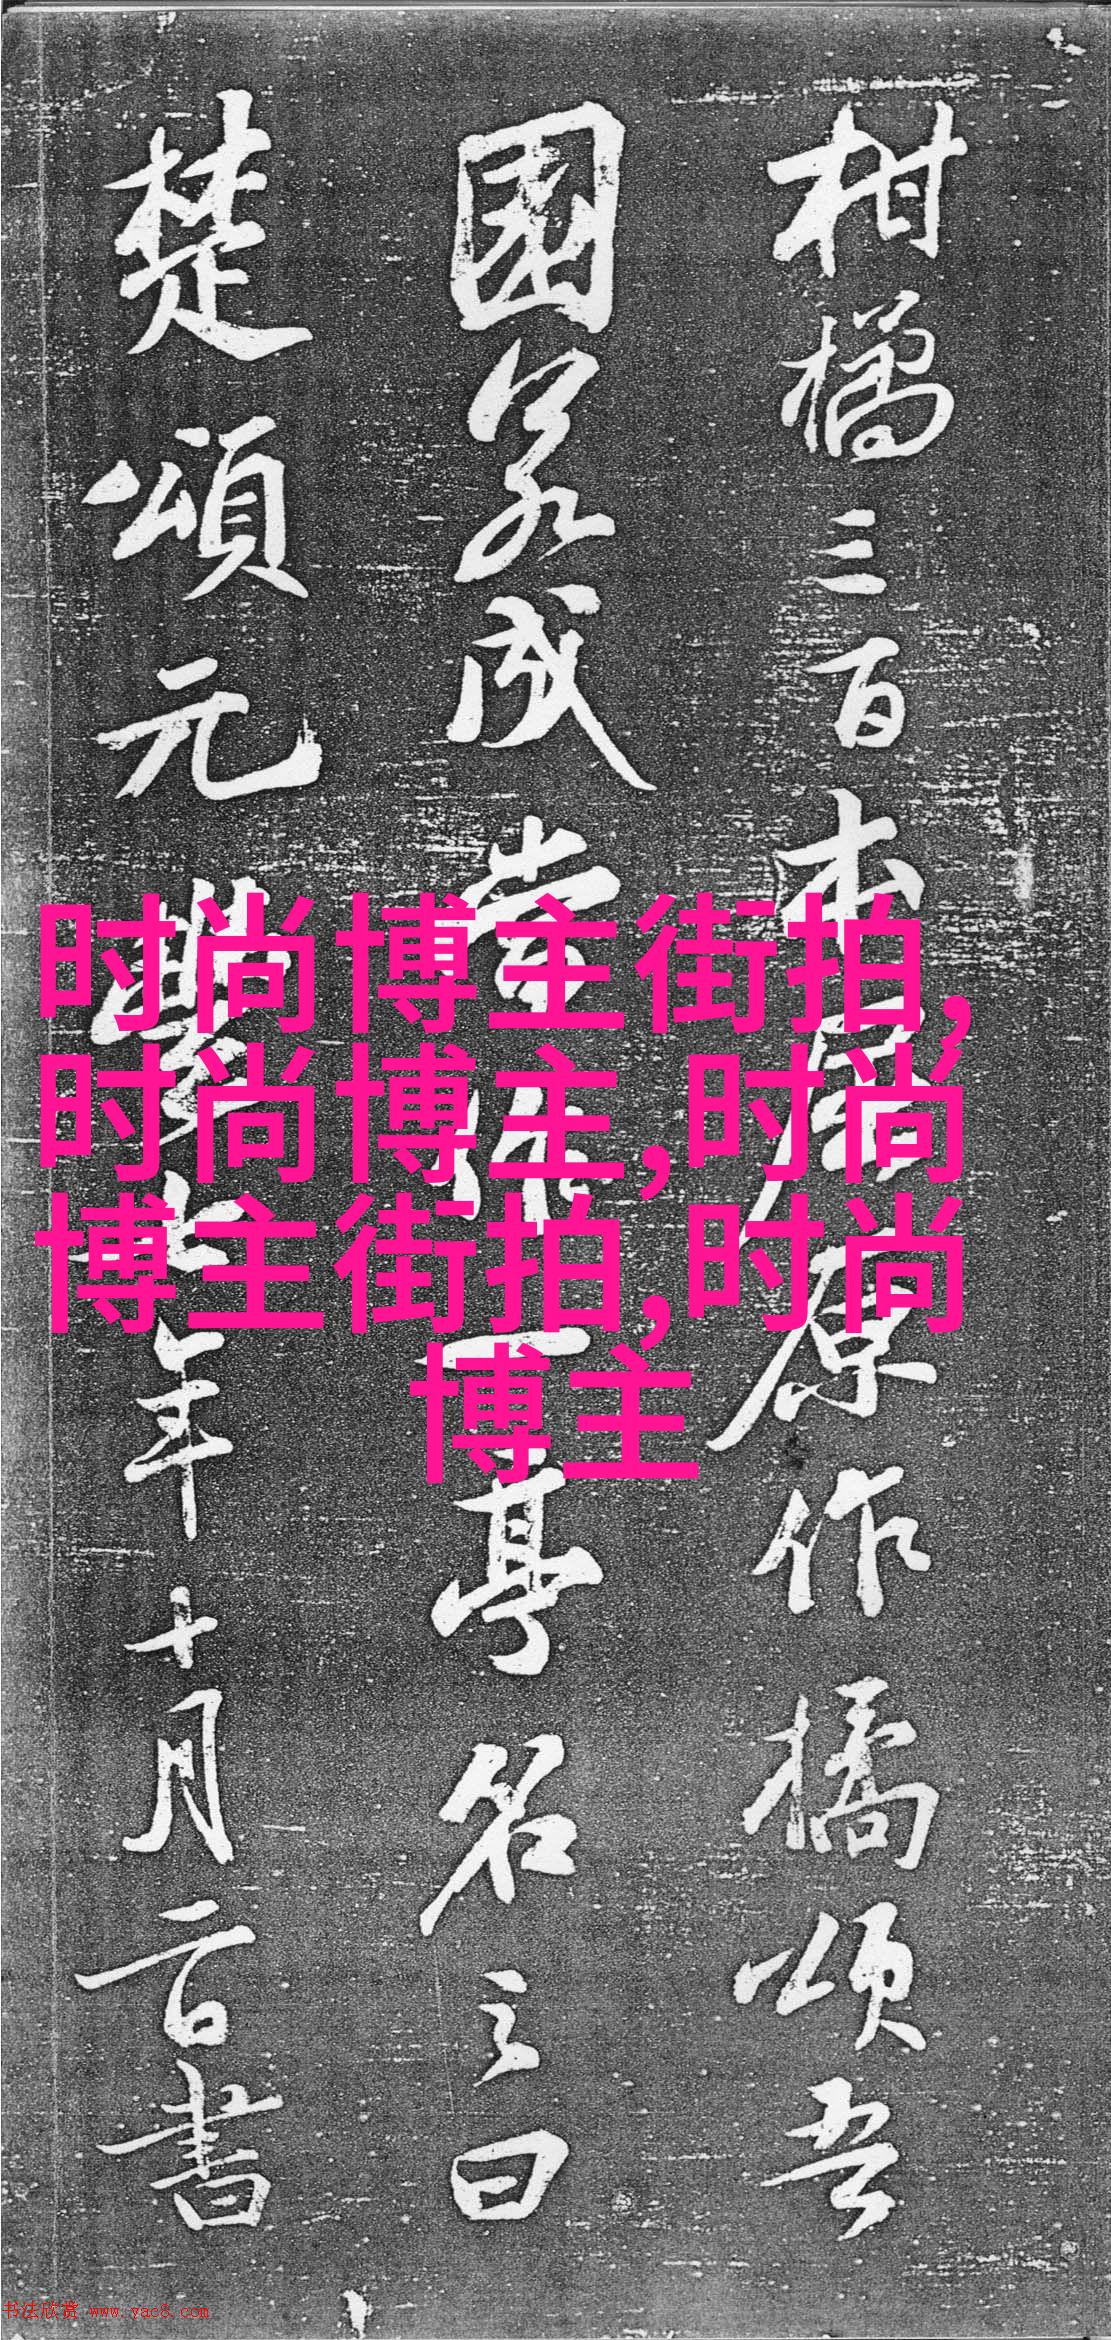 柑橘三百本屈原作橘頌吾
園若成當作一亭名之曰
楚頌元豐七年十月二日書
时尚博主街拍,
时尚博主,时尚
博主街拍,时尚
博主
书法欣赏 www.yac8.com